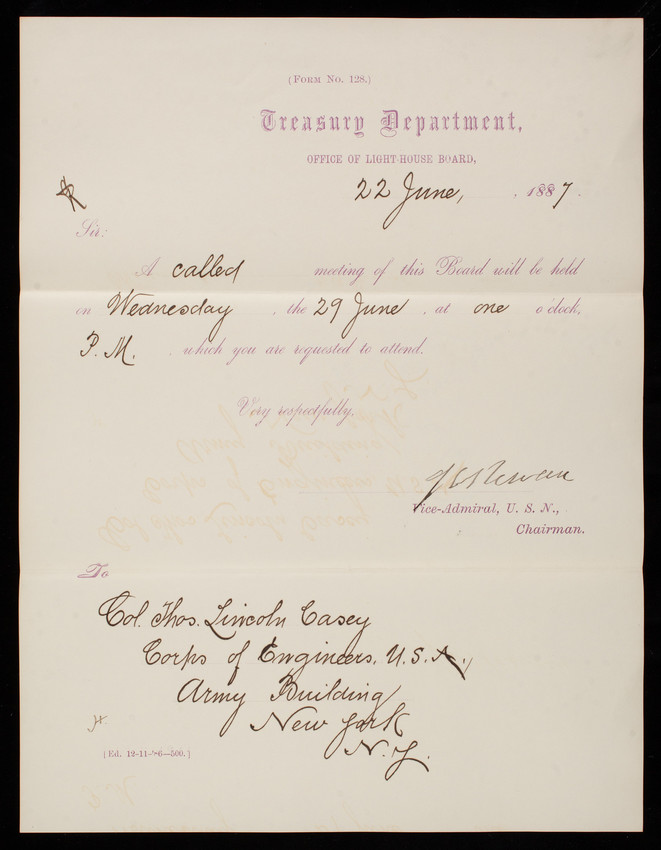 (Form No. 128.)
Treasury Department,
OFFICE OF LIGHT-HOUSE BOARD,
22 June, , 1887.
Sir:
A called meeting of this Board will be held
on Wednesday , the 29 June , at one o'clock,
P. M. , which you are requested to attend.
Very respectfully,
Vice-Admiral, U. S. N.,
Chairman.
To
Col. Thos. Lincoln Casey
Corps of Engineers, U.S.A.,
Army Building
New York
N.Y.
[Ed. 12-11-'86—500.]